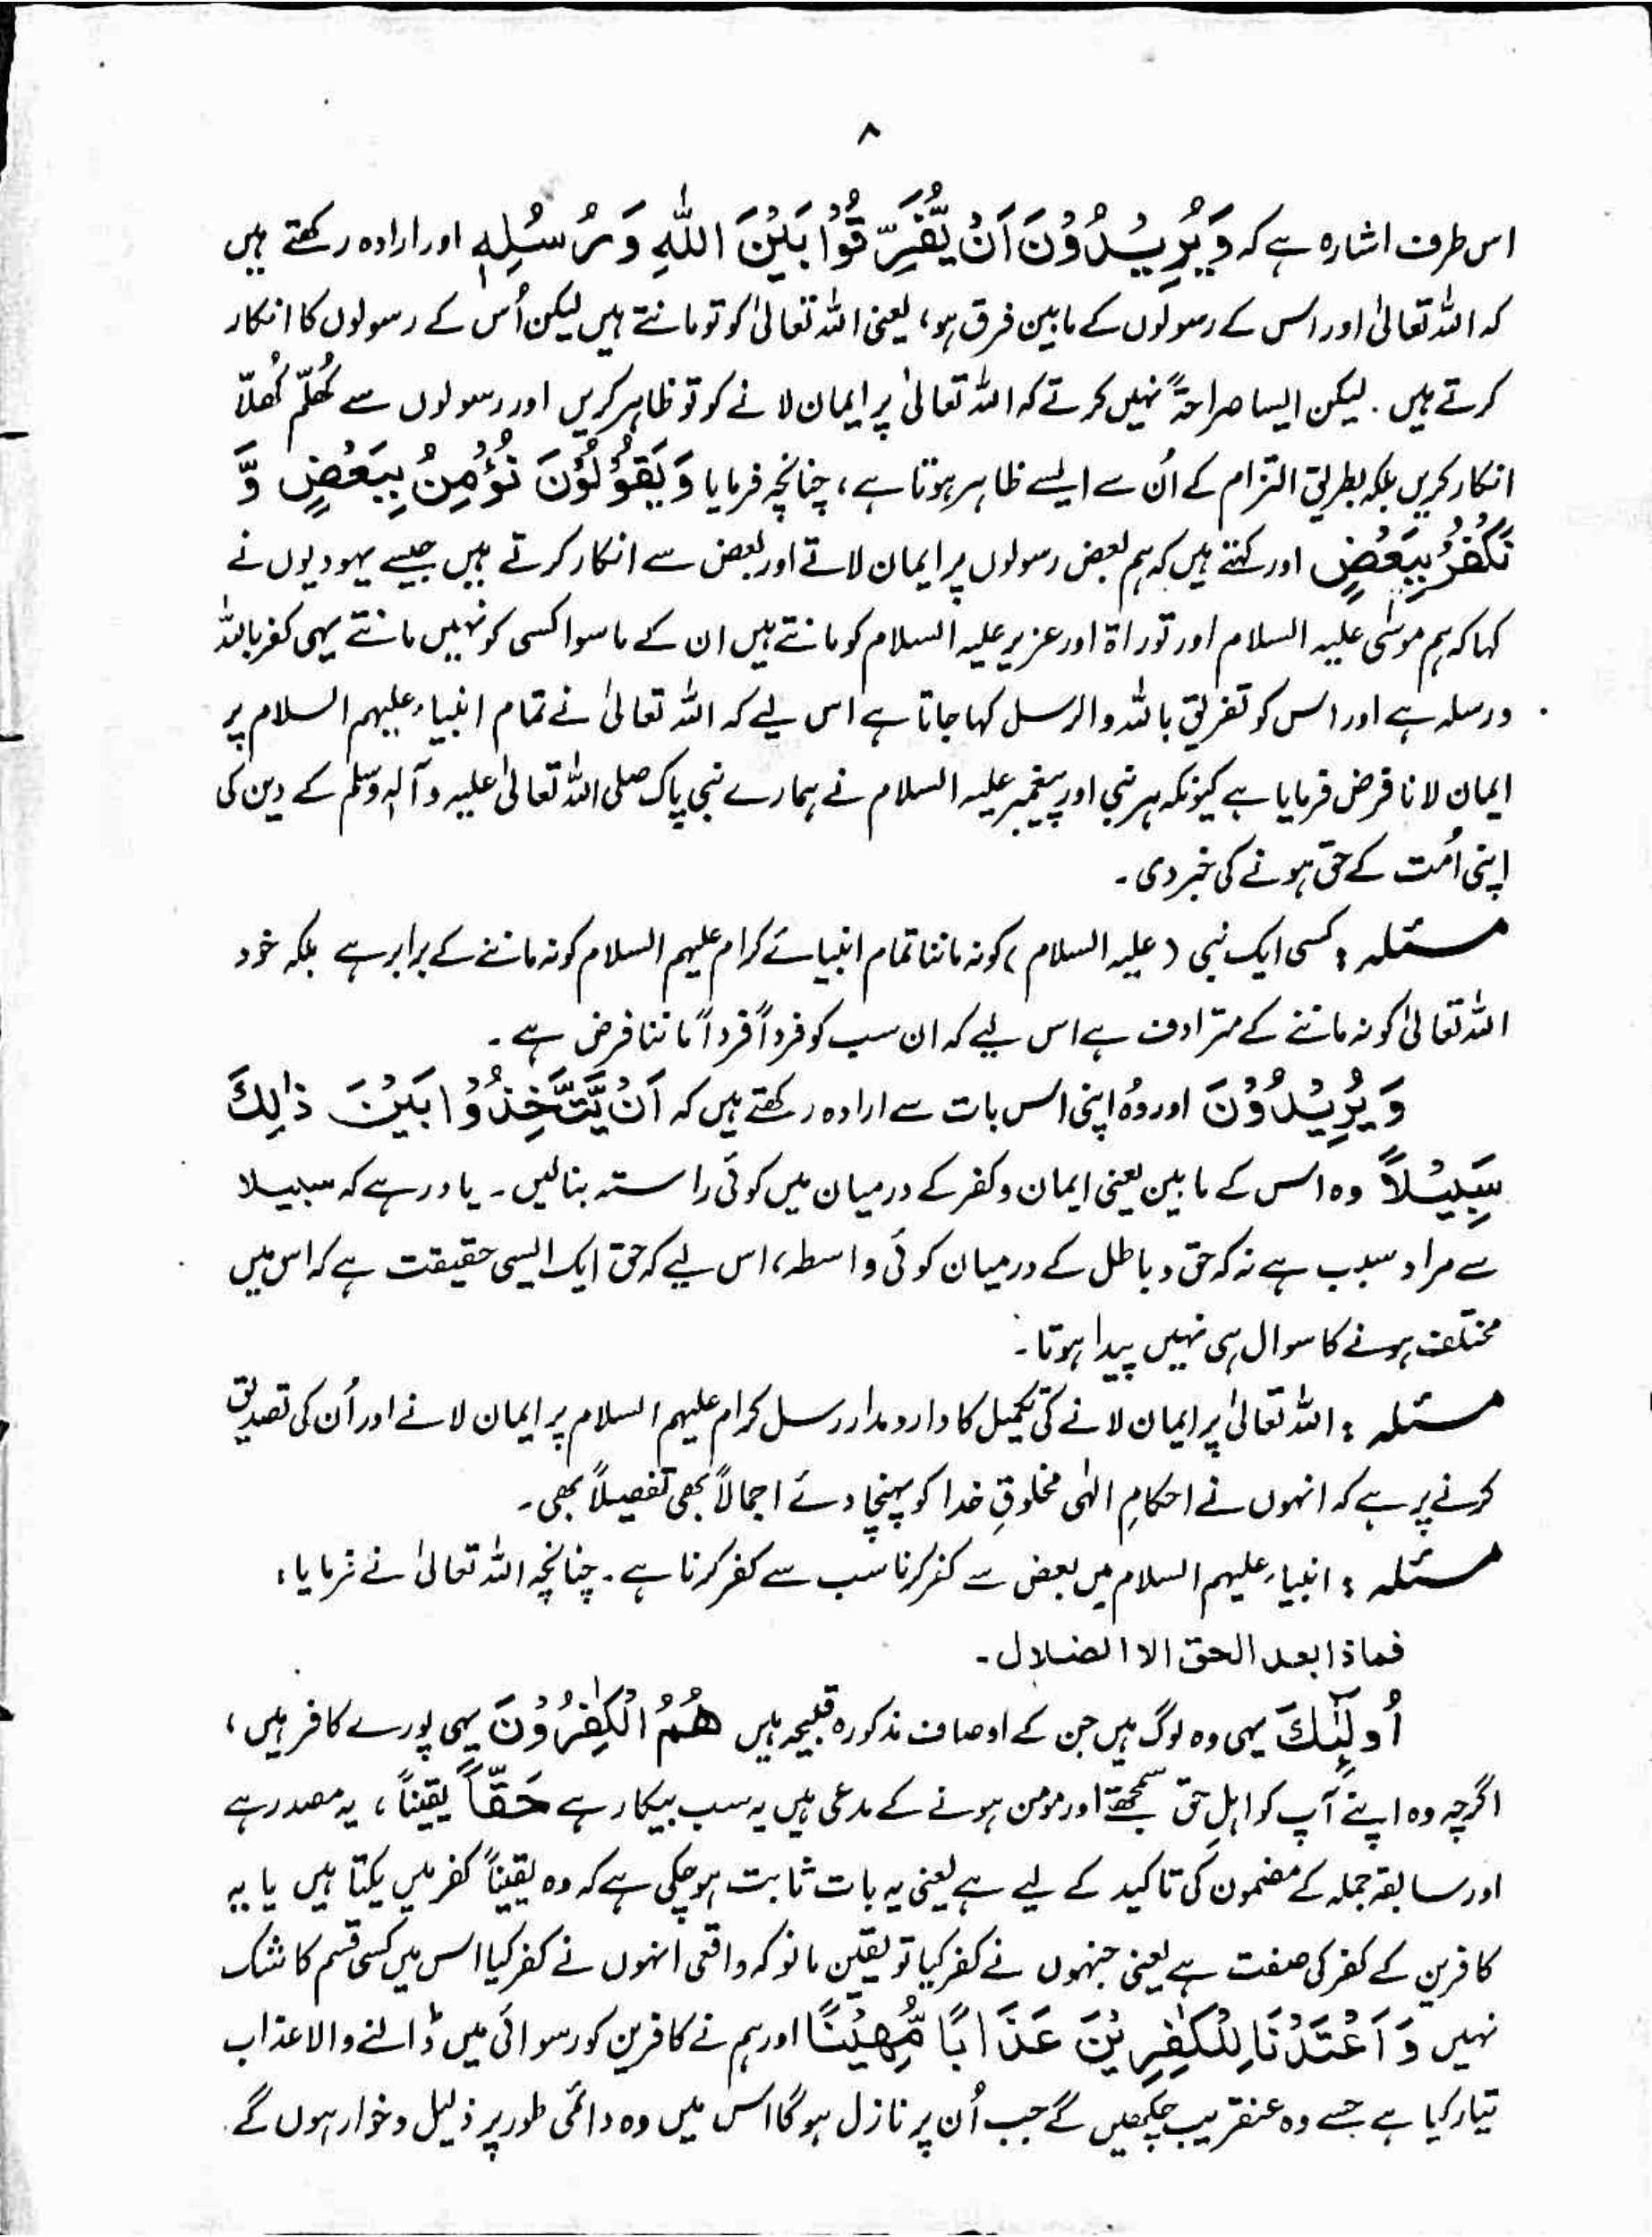 ۸
اس طرف اشارہ ہے کہ وَیُرِیْدُوْنَ اَنْ یُّفَرِّقُوْا بَیْنَ اللّٰہِ وَرُسُلِہٖ اور ارادہ رکھتے ہیں
کہ اللہ تعالیٰ اور اس کے رسولوں کے مابین فرق ہو، یعنی اللہ تعالیٰ کو تو مانتے ہیں لیکن اُس کے رسولوں کا انکار
کرتے ہیں. لیکن ایسا صراحۃً نہیں کرتے کہ اللہ تعالیٰ پر ایمان لانے کو تو ظاہر کریں اور رسولوں سے کُھلّم کُھلاّ
انکار کریں بلکہ بطریق التزام کے اُن سے ایسے ظاہر ہوتا ہے، چنانچہ فرمایا وَیَقُوْلُوْنَ نُؤْمِنُ بِبَعْضٍ وَّ
نَکْفُرُ بِبَعْضٍ اور کہتے ہیں کہ ہم بعض رسولوں پر ایمان لاتے اور بعض سے انکار کرتے ہیں جیسے یہودیوں نے
کہا کہ ہم موسٰی علیہ السلام اور توراۃ اور عزیر علیہ السلام کو مانتے ہیں ان کے ماسوا کسی کو نہیں مانتے یہی کفر باللہ
ورسلہ ہے اور اس کو تفریق باللہ والرسل کہا جاتا ہے اس لیے کہ اللہ تعالیٰ نے تمام انبیاء علیہم السلام پر
ایمان لانا فرض فرمایا ہے کیونکہ ہر نبی اور پیغمبر علیہ السلام نے ہمارے نبی پاک صلی اللہ تعالیٰ علیہ وآلہ وسلم کے دین کی
اپنی اُمت کے حق ہونے کی خبر دی۔
مسئلہ : کسی ایک نبی (علیہ السلام) کو نہ ماننا تمام انبیائے کرام علیہم السلام کو نہ ماننے کے برابر ہے بلکہ خود
اللہ تعالیٰ کو نہ ماننے کے مترادف ہے اس لیے کہ ان سب کو فرداً فرداً ماننا فرض ہے۔
وَیُرِیْدُوْنَ اور وُہ اپنی اس بات سے ارادہ رکھتے ہیں کہ اَنْ یَّتَّخِذُوْا بَیْنَ ذٰلِكَ
سَبِیْلاً وہ اس کے مابین یعنی ایمان وکفر کے درمیان میں کوئی راستہ بنالیں۔ یاد رہے کہ سبیلا
سے مراد سبب ہے نہ کہ حق وباطل کے درمیان کوئی واسطہ، اس لیے کہ حق ایک ایسی حقیقت ہے کہ اس میں
مختلف ہونے کا سوال ہی نہیں پیدا ہوتا۔
مسئلہ : اللہ تعالیٰ پر ایمان لانے کی تکمیل کا دارومدار رسل کرام علیہم السلام پر ایمان لانے اور اُن کی تصدیق
کرنے پر ہے کہ انہوں نے احکامِ الٰہی مخلوقِ خدا کو پہنچا دئے اجمالاً بھی تفصیلاً بھی۔
مسئلہ : انبیاء علیہم السلام میں بعض سے کفر کرنا سب سے کفر کرنا ہے۔ چنانچہ اللہ تعالیٰ نے فرمایا:
فماذا بعد الحق الا الضلال۔
اُولٰٓئِكَ یہی وہ لوگ ہیں جن کے اوصاف مذکورہ قبیحہ ہیں ھُمُ الْکٰفِرُوْنَ یہی پورے کافر ہیں،
اگرچہ وہ اپنے آپ کو اہلِ حق سمجھتے اور مومن ہونے کے مدعی ہیں یہ سب بیکار ہے حَقّاً یقیناً، یہ مصدر ہے
اور سابقہ جملہ کے مضمون کی تاکید کے لیے ہے یعنی یہ بات ثابت ہوچکی ہے کہ وہ یقیناً کفر میں یکتا ہیں یا یہ
کافرین کے کفر کی صفت ہے یعنی جنہوں نے کفر کیا تو یقین مانو کہ واقعی انہوں نے کفر کیا اس میں کسی قسم کا شک
نہیں وَاَعْتَدْنَا لِلْکٰفِرِیْنَ عَذَابًا مُّھِیْنًا اور ہم نے کافرین کو رسوائی میں ڈالنے والا عذاب
تیار کیا ہے جسے وہ عنقریب چکھیں گے جب اُن پر نازل ہوگا اس میں وہ دائمی طور پر ذلیل وخوار ہوں گے۔